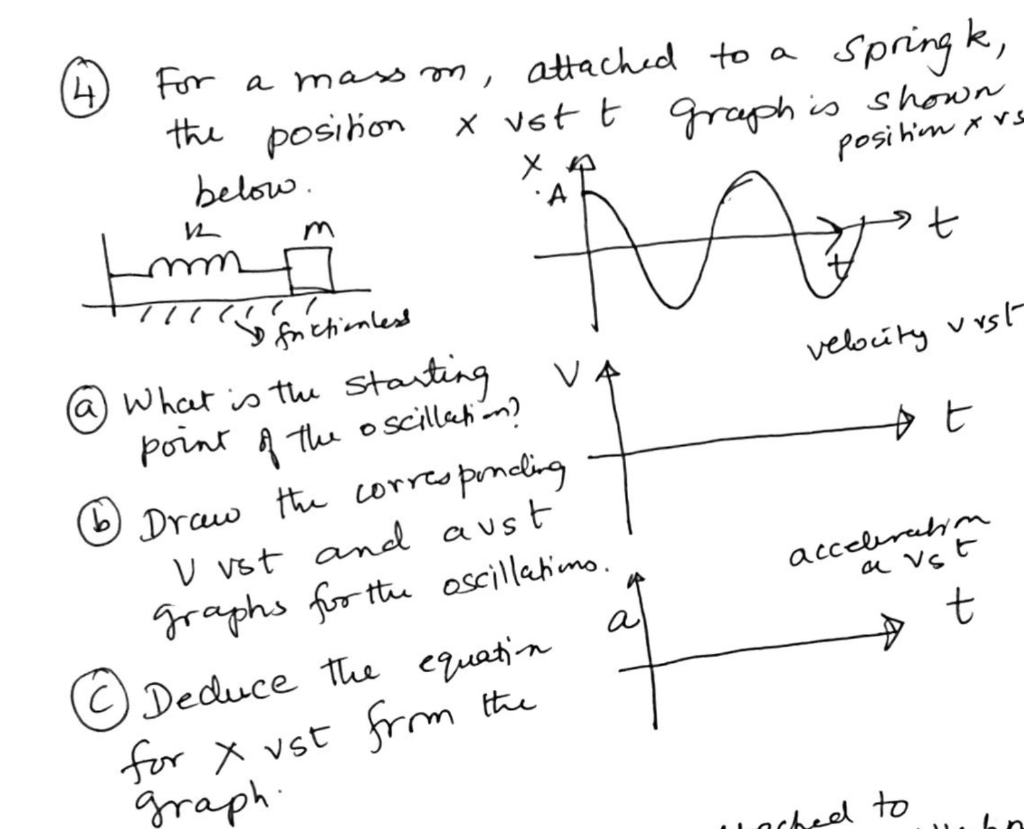 4 For a mass m, attached to a spring k,
the position x vst t graph is shown
below.
position x vs
X
A
t
t
k
m
frictionless
a What is the starting
point of the oscillation?
velocity v vst
V
t
b Draw the corresponding
V vst and a vst
graphs for the oscillations.
acceleration
a vst
a
t
C Deduce the equation
for X vst from the
graph.
attached to